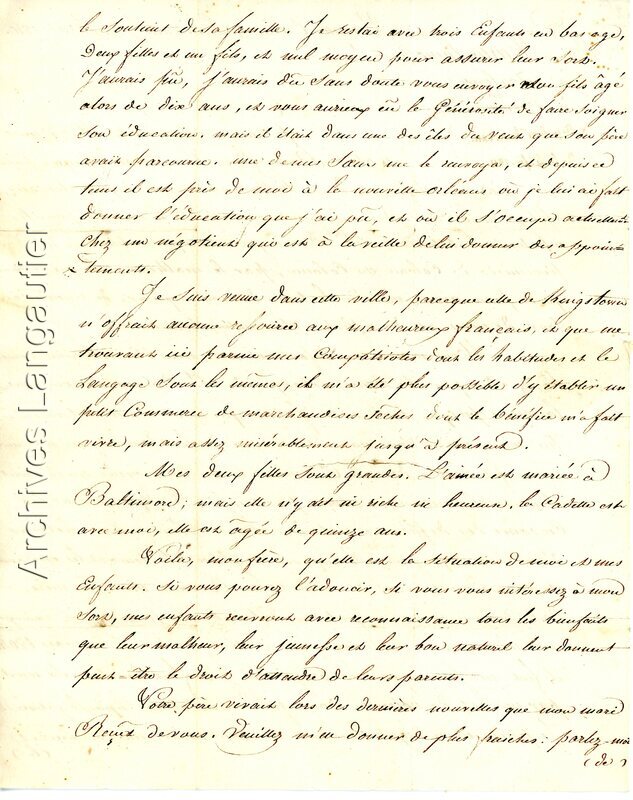 le soutient de sa famille. Je restai avec trois Enfants en bas age,
Deux filles et un fils, et nul moyen pour assurer leur sort.
J'aurais pu, j'aurais dû sans doute vous envoyer mon fils âgé
alors de dix ans, et vous auriez eu la Générosité de faire soigner
son éducation. mais il était dans une des îles du vent que son père
avait parcourue. une de mes Sœurs me le renvoya, et depuis ce
tems il est près de moi à la nouvelle orléans où je lui ai fait
donner l'éducation que j'ai pu, et où il s'occupe actuellement
chez un négotient qui est à la veille de lui donner des appoin=
=tements.
Je suis venue dans cette ville, parceque celle de Kingstown
n'offrait aucune ressource aux malheureux francais, et que me
trouvant ici parmie mes Compatriotes dont les habitudes et le
Langage sont les mêmes, il m'a été plus possible d'y établir un
petit Commerce de marchandises sèches dont le bénéfice m'a fait
vivre, mais assez misérablement jusqu'à présent.
Mes deux filles sont grandes. L'ainée est mariée à
Baltimore; mais elle n'y est ni riche ni heureuse. la Cadette est
avec moi, elle est âgée de quinze ans.
Voilà, mon frère, qu'elle est la situation de moi et mes
Enfants. Si vous pouvez l'adoucir, si vous vous intéressez à mon
sort, mes enfants recevront avec reconnaissance tous les bienfaits
que leur malheur, leur jeunesse et leur bon naturel leur donnent
peut-être le droit d'attendre de leurs parents.
Votre père vivait lors des dernières nouvelles que mon mari
Reçut de vous. Veuillez m'en donner de plus fraiches: parlez-moi
(de
Archives Langautier